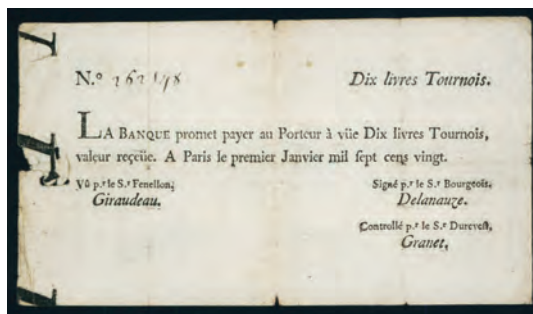 N.º Dix livres Tournois.
LA BANQUE promet payer au Porteur à vüe Dix livres Tournois,
valeur reçeüe. A Paris le premier Janvier mil ſept cens vingt.
Vû p.r le S.r Fenellon, Signé p.r le S.r Bourgeois,
Giraudeau. Delanauze.
Controllé p.r le S.r Durevest,
Granet,